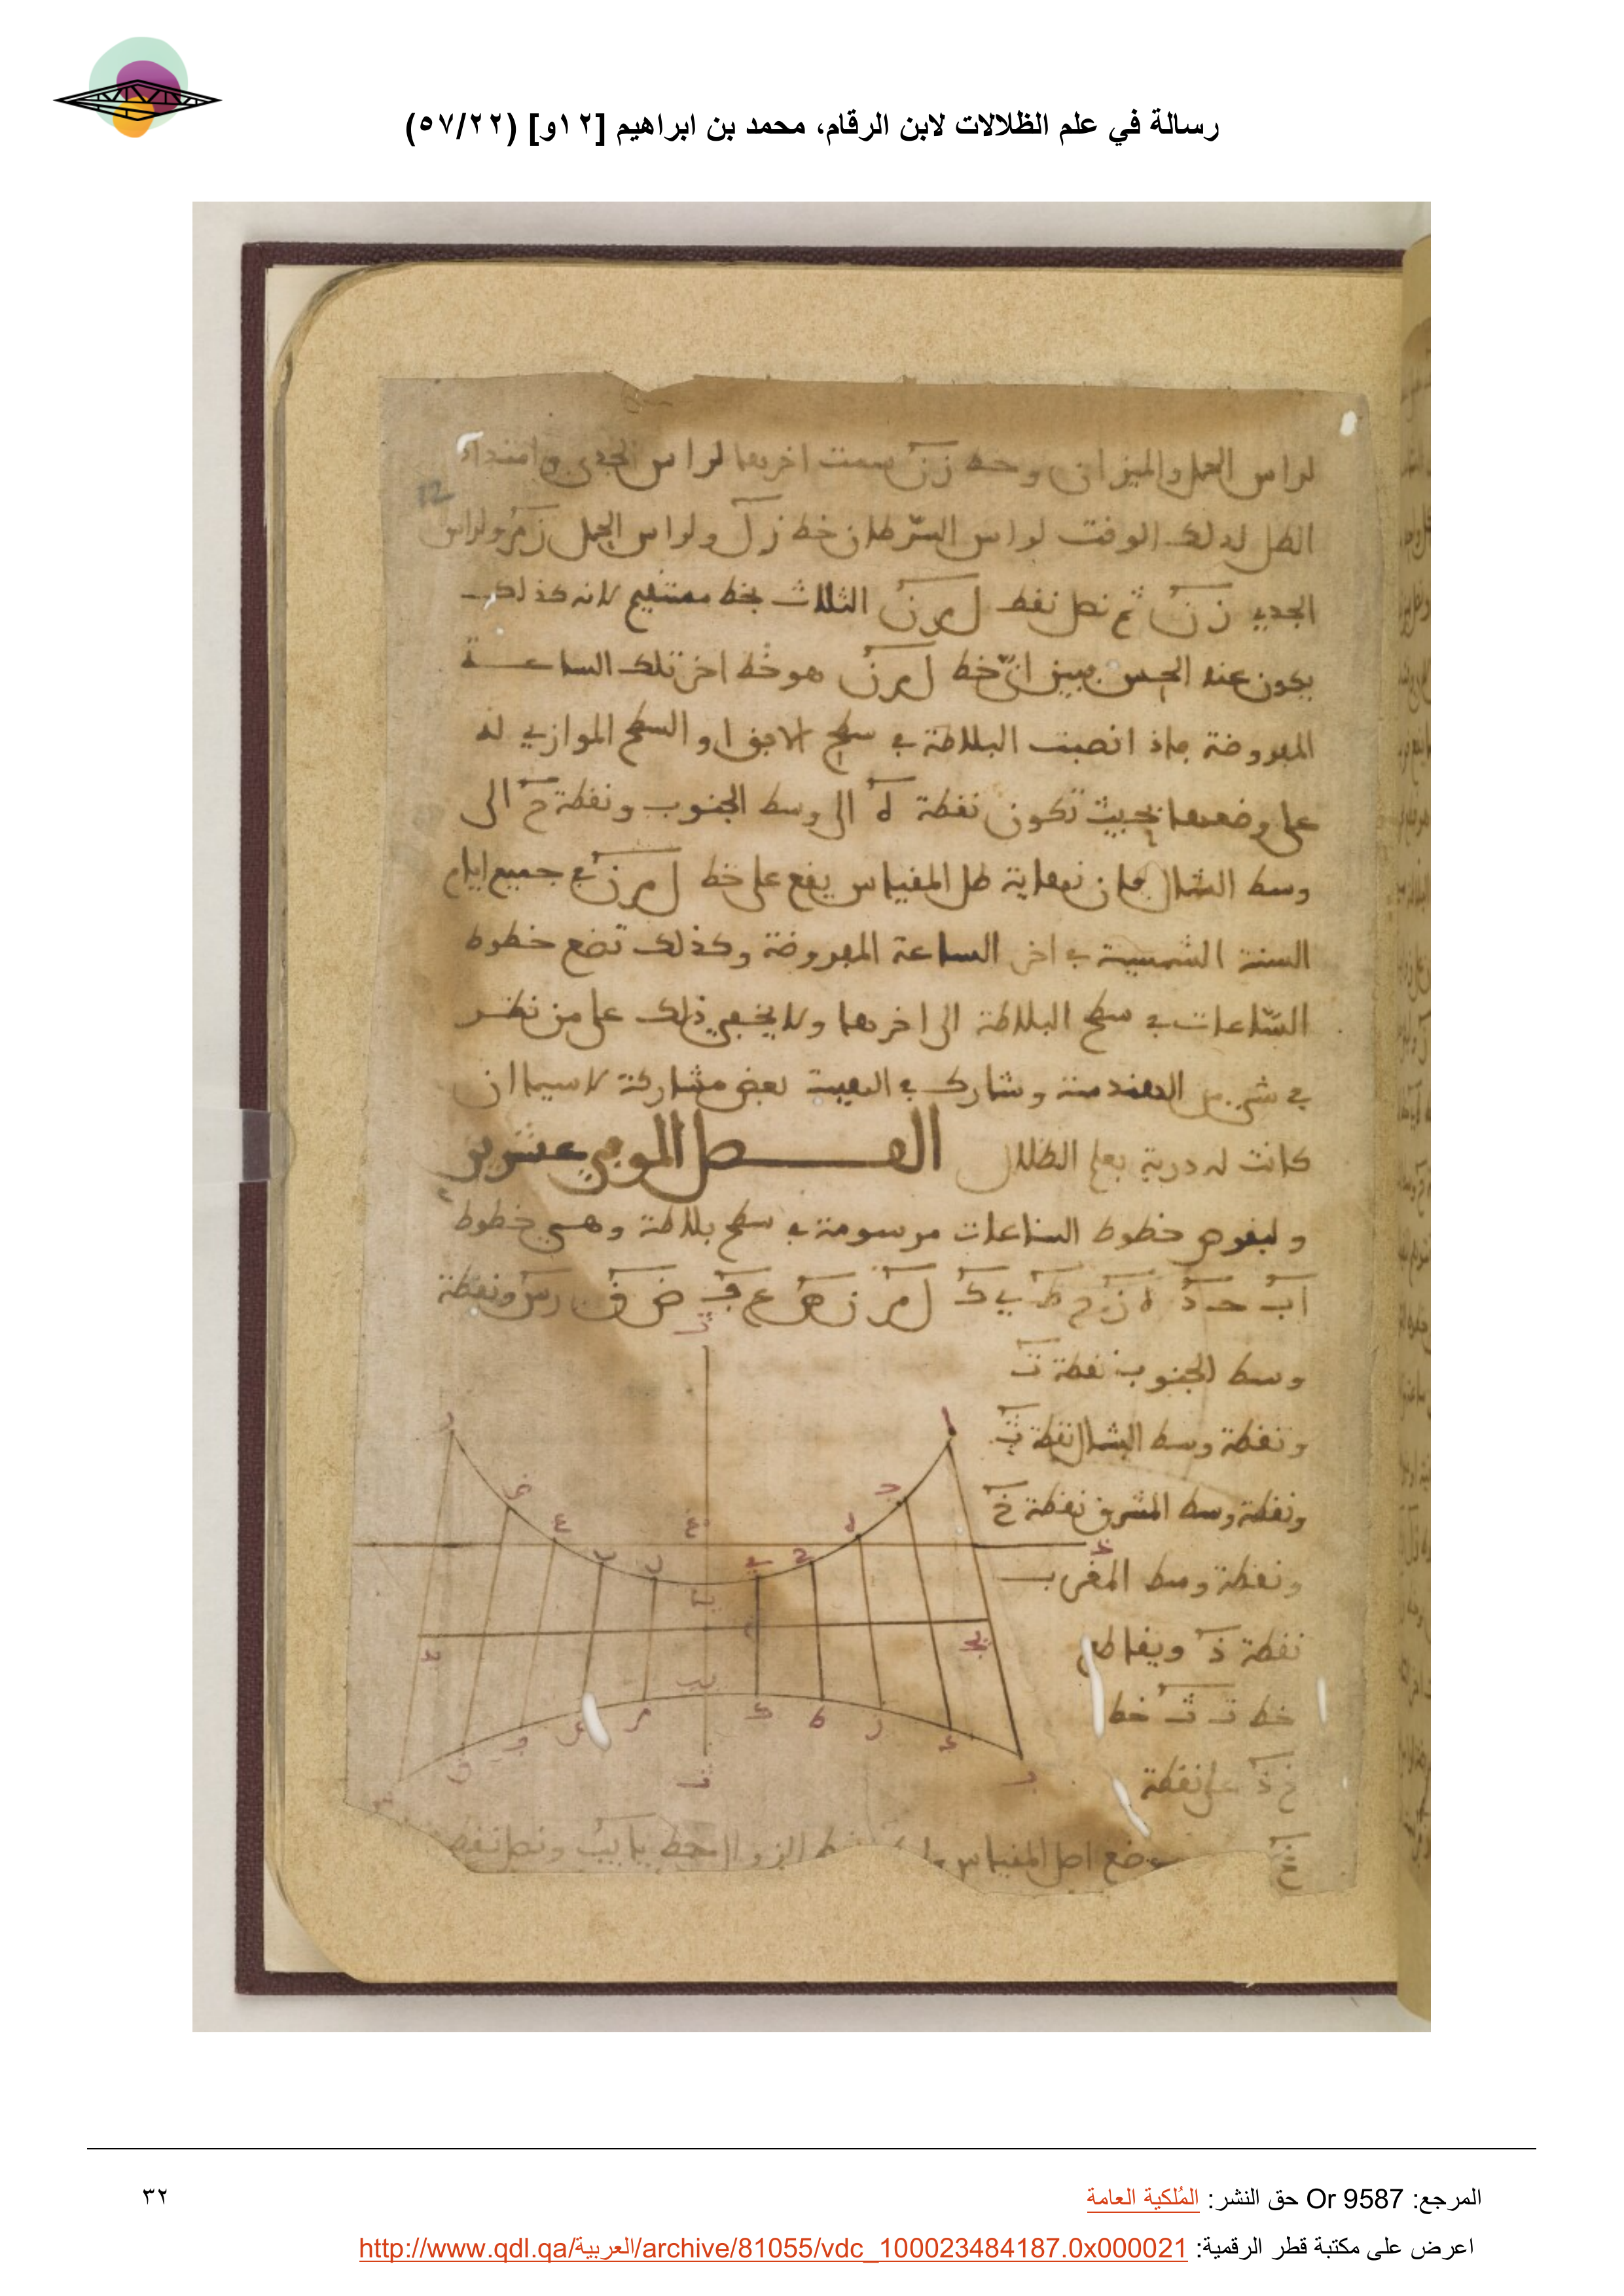 رسالة في علم الظلالات لابن الرقام، محمد بن ابراهيم [١٢و] (٥٧/٢٢)
12
لراس الحمل والميزان وخط زن سمت اخرها لراس الجدي وامتداد
الظل لذلك الوقت لراس السّرطان خط زل ولراس الحمل زم ولراس
الجدي زن ثم نصل نقط ل م ن الثلاث بخط مستقيم لانه كذلك
يكون عند الحس فبين انّ خط ل م ن هو خط اخر تلك الساعة
المفروضة فاذا نصبت البلاطة في سطح الافق او السطح الموازي له
على وضعها بحيث تكون نقطة ه الى وسط الجنوب ونقطة ح الى
وسط الشمال فان نهاية ظل المقياس يقع على خط ل م ن في جميع ايام
السنة الشمسية في اخر الساعة المفروضة وكذلك تضع خطوط
السّاعات في سطح البلاطة الى اخرها ولا يخفى ذلك على من نظر
في شيء من الهندسة وشارك في الهيئة بعض مشاركة لا سيما ان
كانت له دربة بعلم الظلال الفصل الموفي عشرين
ولنفرض خطوط الساعات مرسومة في سطح بلاطة وهي خطوط
اب حد ه ز ح ط ي ك ل م ن ص ع ف ض ق رس ونقطة
وسط الجنوب نقطة ت
ونقطة وسط الشمال نقطة ث
ونقطة وسط المشرق نقطة خ
ونقطة وسط المغرب
نقطة ذ ويقاطع
خط ت ث خط
خ ذ على نقطة
غ
ضع اصل المقياس
الزوال خط يا يب ونصل نقط
المرجع: Or 9587 حق النشر: المُلكية العامة
٣٢
اعرض على مكتبة قطر الرقمية: http://www.qdl.qa/العربية/archive/81055/vdc_100023484187.0x000021